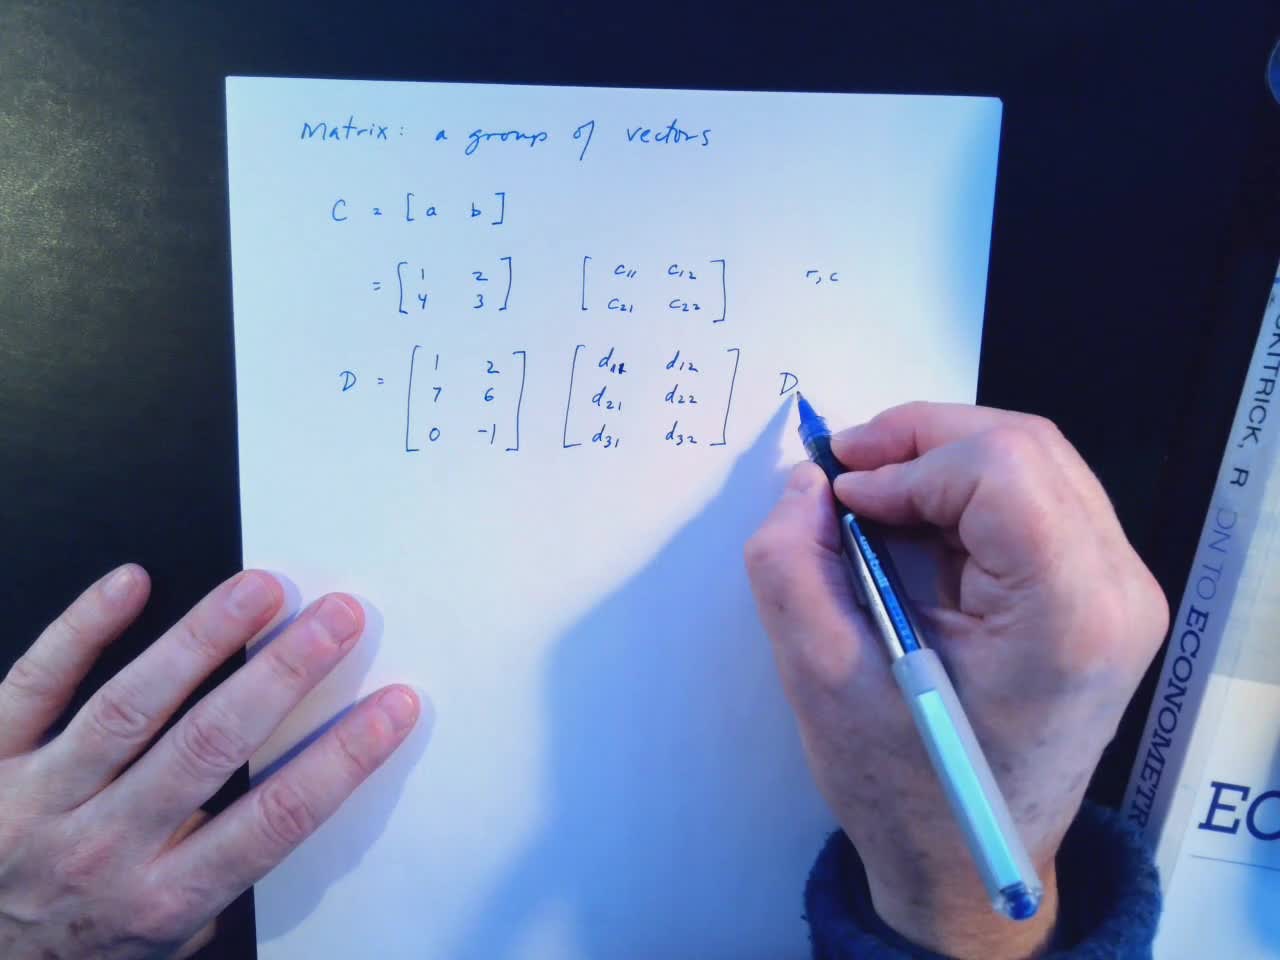 Matrix: a group of vectors
C = [ a b ]
= [ 1 2 ] [ c11 c12 ] r, c
[ 4 3 ] [ c21 c22 ]
D = [ 1 2 ] [ d11 d12 ] D
[ 7 6 ] [ d21 d22 ]
[ 0 -1 ] [ d31 d32 ]
uni-ball
KITRICK, R
ON TO ECONOMETR
EC